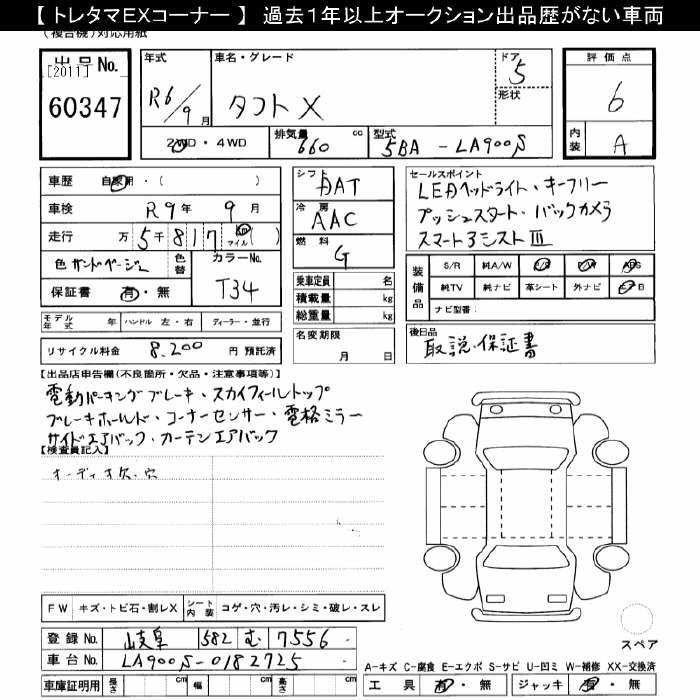 【 トレタマEXコーナー 】 過去1年以上オークション出品歴がない車両
(複合機)対応用紙
出品No.
[2011]
60347
年式 R6/9月
車名・グレード タフト X
ドア 5
形状
評価点 6
内装 A
2WD・4WD
排気量 660 cc
型式 5BA - LA900S
車歴 自家用・( )
車検 R9年 9月
走行 万5千817 km マイル ( )
色 サンドベージュ 色替
保証書 有・無
カラーNo. T34
モデル年式 年 ハンドル 左・右 ディーラー・並行
リサイクル料金 8,200 円 預託済
シフト DAT
冷房 AAC
燃料 G
乗車定員 名
積載量 kg
総重量 kg
名変期限 月 日
セールスポイント
LEDヘッドライト・キーフリー
プッシュスタート・バックカメラ
スマートアシストⅢ
装備品 S/R 純A/W P/S P/W ABS
純TV 純ナビ 革シート 外ナビ エアB
ナビ型番:
後日品
取説・保証書
【出品店申告欄(不良箇所・欠品・注意事項等)】
電動パーキングブレーキ・スカイフィールトップ
ブレーキホールド・コーナーセンサー・電格ミラー
サイドエアバック・カーテンエアバック
【検査員記入】
オーディオ欠・穴
FW キズ・トビ石・割レX シート内装 コゲ・穴・汚レ・シミ・破レ・スレ
登録No. 岐阜 582 む 7556
車台No. LA900S-0182725
車庫証明用 長さ cm 幅 cm 高さ cm
スペア
A-キズ C-腐食 E-エクボ S-サビ U-凹ミ W-補修 XX-交換済
工具 有・無 ジャッキ 有・無